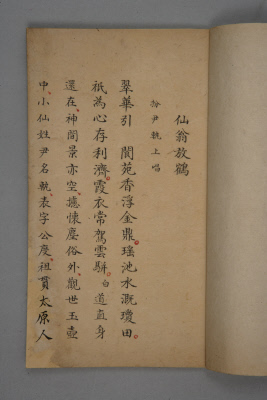 仙翁放鶴
扮尹軌上唱
翠華引　閬苑香浮金鼎瑤池水溉瓊田
祇為心存利濟霞衣常駕雲騈白道直身
還在神閒景亦空攄懷塵俗外觀世玉壺
中小仙姓尹名軌表字公度祖貫太原人